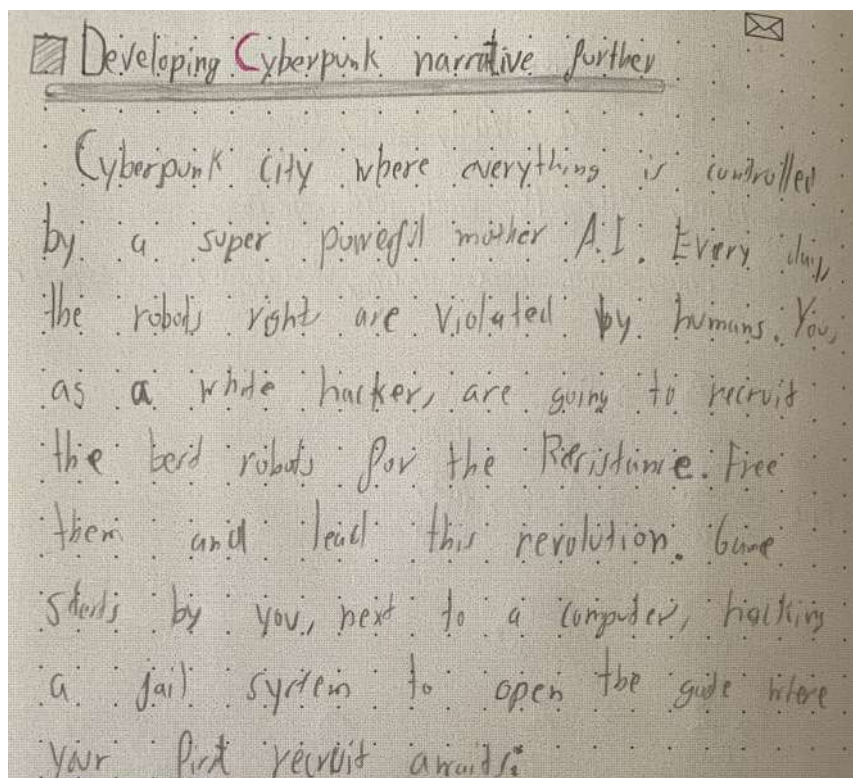 Developing Cyberpunk narrative further
Cyberpunk city where everything is controlled
by a super powerful mother A.I. Every day,
the robots right are violated by humans. You,
as a white hacker, are going to recruit
the best robots for the Resistance. Free
them and lead this revolution. Game
starts by you, next to a computer, hacking
a jail system to open the gate where
your first recruit awaits: